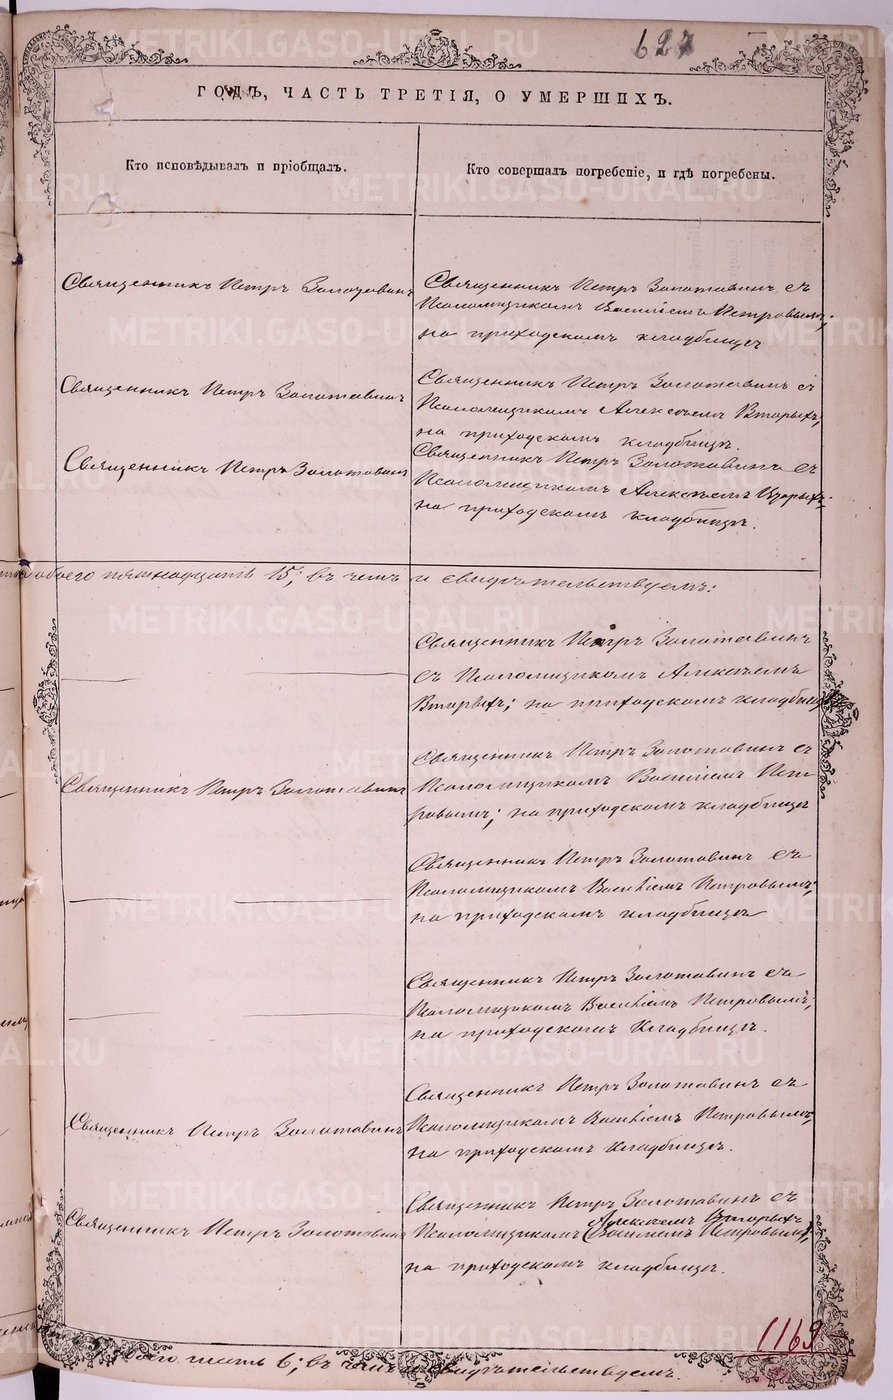 627
ГОДЪ, ЧАСТЬ ТРЕТІЯ, О УМЕРШИХЪ.
Кто исповѣдывалъ и пріобщалъ.
Кто совершалъ погребеніе, и гдѣ погребены.
Священникъ Петръ Золотавинъ
Священникъ Петръ Золотавинъ съ
Псаломщикомъ Василіемъ Петровымъ;
на приходскомъ кладбищѣ
Священникъ Петръ Золотавинъ
Священникъ Петръ Золотавинъ съ
Псаломщикомъ Алексѣемъ Вторыхъ;
на приходскомъ кладбищѣ.
Священникъ Петръ Золотавинъ
Священникъ Петръ Золотавинъ съ
Псаломщикомъ Алексѣемъ Вторыхъ;
на приходскомъ кладбищѣ.
обоего пятнадцать 15; въ чемъ и свидѣтельствуемъ:
Священникъ Петръ Золотавинъ
съ Псаломщикомъ Алексѣемъ
Вторыхъ; на приходскомъ кладбищѣ
Священникъ Петръ Золотавинъ
Священникъ Петръ Золотавинъ съ
Псаломщикомъ Василіемъ Пет-
ровымъ; на приходскомъ кладбищѣ
Священникъ Петръ Золотавинъ съ
Псаломщикомъ Василіемъ Петровымъ;
на приходскомъ кладбищѣ
Священникъ Петръ Золотавинъ съ
Псаломщикомъ Василіемъ Петровымъ;
на приходскомъ кладбищѣ.
Священникъ Петръ Золотавинъ
Священникъ Петръ Золотавинъ съ
Псаломщикомъ Василіемъ Петровымъ;
на приходскомъ кладбищѣ.
Священникъ Петръ Золотавинъ
Священникъ Петръ Золотавинъ съ
Алексѣемъ Вторыхъ
Псаломщикомъ (Василіемъ Петровымъ);
на приходскомъ кладбищѣ.
1169
6; въ чемъ и свидѣтельствуемъ.
METRIKI.GASO-URAL.RU